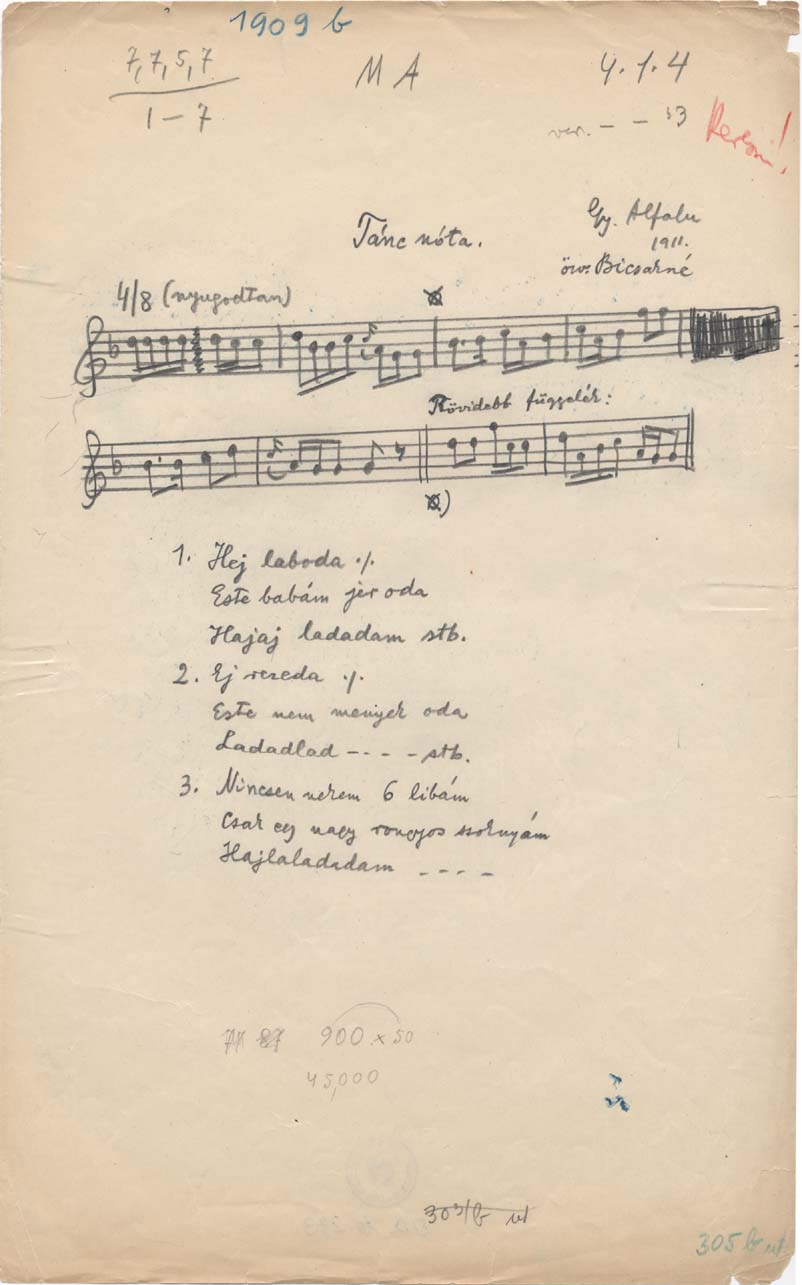 1909 b
7, 7, 5, 7
1 – 7
M A
4. 1. 4
var. – – 53
Táncnóta.
Gy. Alfalu
1911.
özv. Bicsakné
4/8 (nyugodtan)
Rövidebb függelék:
1. Hej laboda ·/.
Este babám jer oda
Hajaj ladadam stb.
2. Ej rezeda ·/.
Este nem menyek oda
Ladadlad – – – – stb.
3. Nincsen nekem 6 libám
Csak egy nagy rongyos szoknyám
Hajlaladadam – – – –
900 x 50
45,000
303/b ut
305 b ut